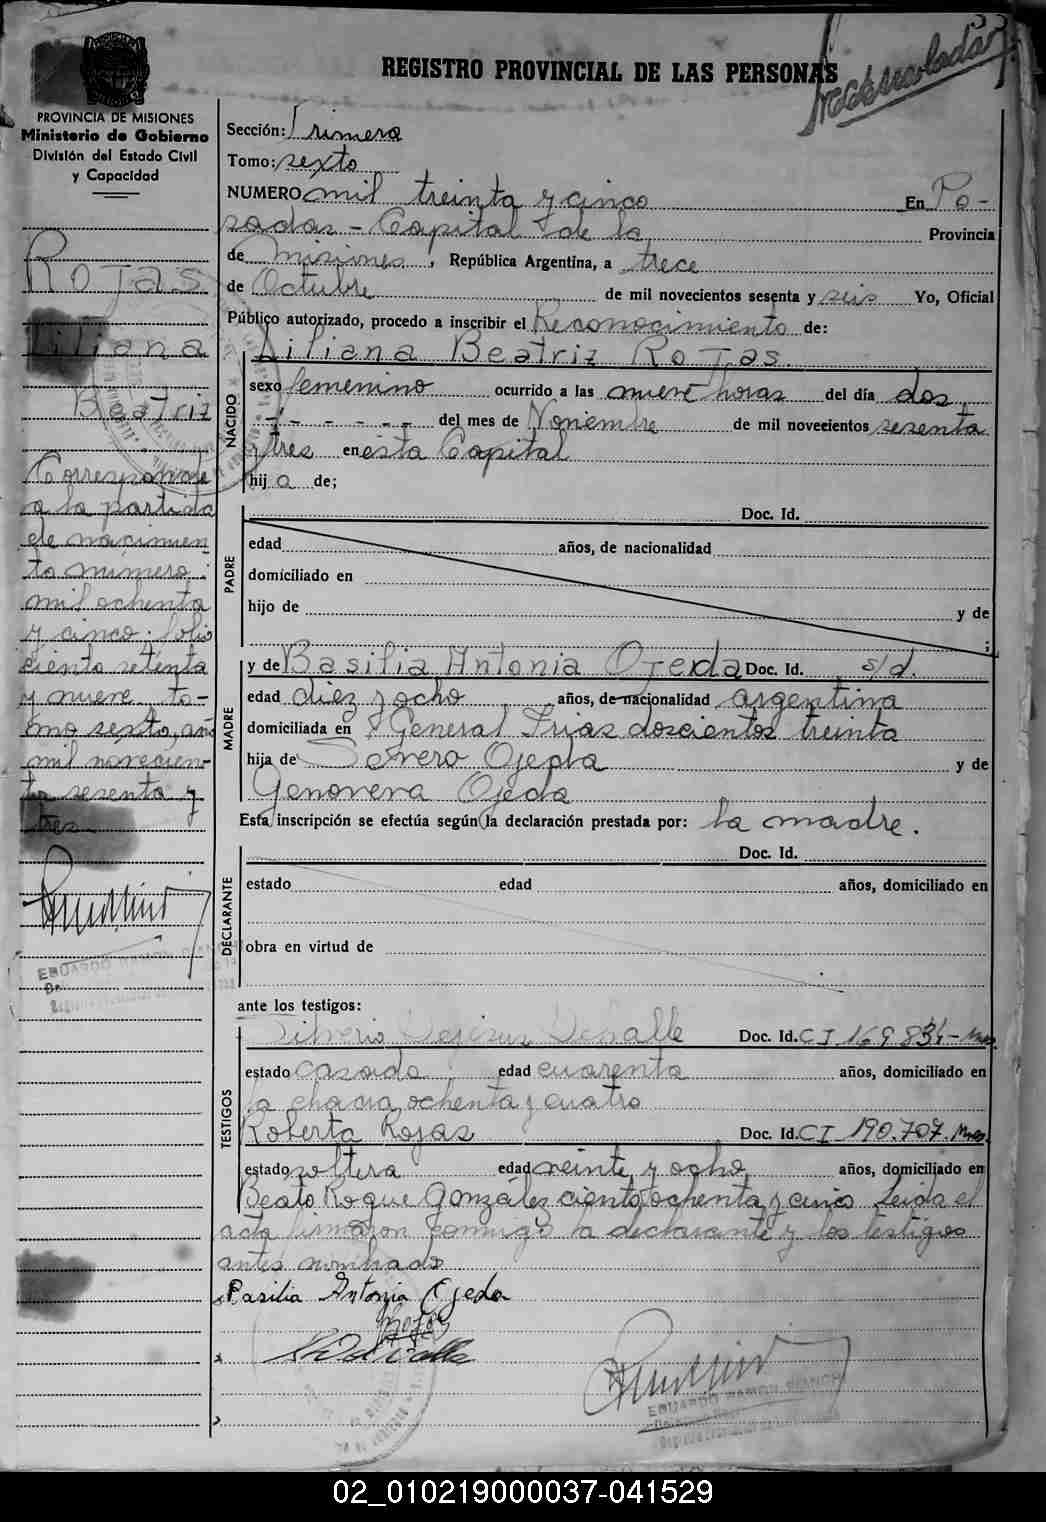 REGISTRO PROVINCIAL DE LAS PERSONAS
PROVINCIA DE MISIONES
Ministerio de Gobierno
División del Estado Civil
y Capacidad
Rojas
Liliana
Beatriz
Corresponde
a la partida
de nacimien
to número
mil ochenta
y cinco. folio
ciento setenta
y nueve to-
mo sexto, año
mil novecien-
to sesenta y
tres
EDUARDO RAMON BIANCHI
Sección: Primera
Tomo: sexto
NUMERO mil treinta y cinco En Po-
sadas - Capital de la Provincia
de Misiones, República Argentina, a trece
de Octubre de mil novecientos sesenta y seis Yo, Oficial
Público autorizado, procedo a inscribir el Reconocimiento de:
Liliana Beatriz Rojas.
NACIDO
sexo femenino ocurrido a las nueve horas del día dos
- - - - - - del mes de Noviembre de mil novecientos sesenta
y tres en esta Capital
hija de;
PADRE
Doc. Id.
edad años, de nacionalidad
domiciliado en
hijo de y de
;
MADRE
y de Basilia Antonia Ojeda Doc. Id. s/d.
edad diez y ocho años, de nacionalidad argentina
domiciliada en General Frias doscientos treinta
hija de Severo Ojeda y de
Genoveva Ojeda
Esta inscripción se efectúa según la declaración prestada por: la madre.
DECLARANTE
Doc. Id.
estado edad años, domiciliado en
obra en virtud de
ante los testigos:
TESTIGOS
Silverio Dejesus Doc. Id. CI 169.834- Mnes.
estado casado edad cuarenta años, domiciliado en
la chacra ochenta y cuatro
Roberta Rojas Doc. Id. CI 190.707. Mnes.
estado soltera edad veinte y ocho años, domiciliado en
Beato Roque González ciento ochenta y cinco Leida el
acta firmaron conmigo la declarante y los testigos
antes nombrado
Basilia Antonia Ojeda
Rojas
EDUARDO RAMON BIANCHI
02_010219000037-041529